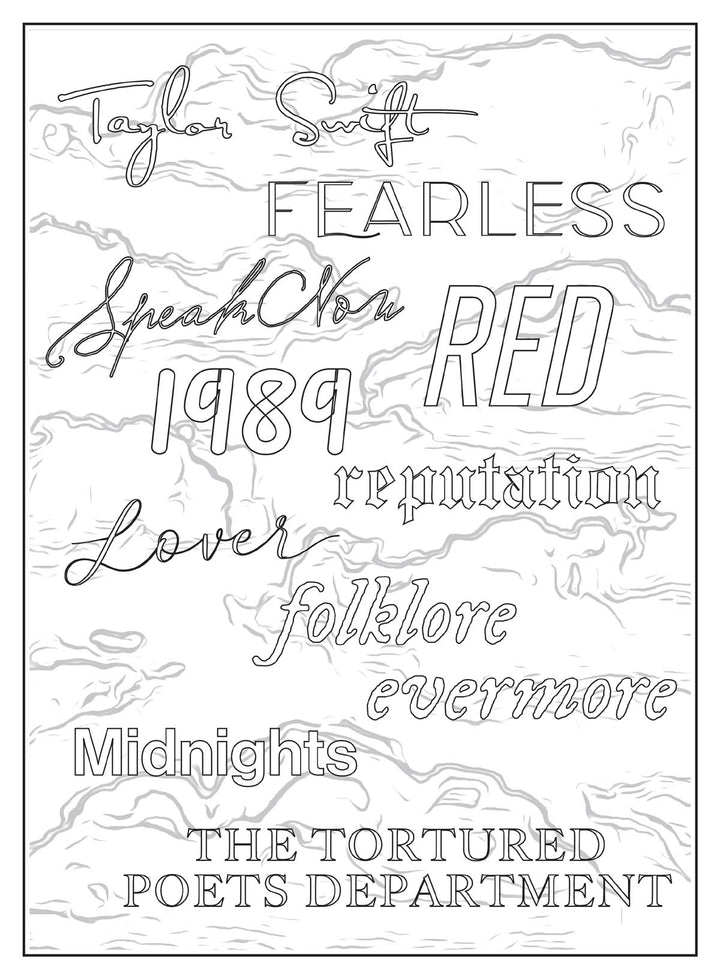 Taylor Swift
FEARLESS
Speak Now
RED
1989
reputation
Lover
folklore
evermore
Midnights
THE TORTURED
POETS DEPARTMENT